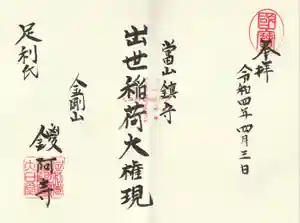 奉拝
令和四年四月三日
當山鎮守
出世稲荷大権現
金剛山
鑁阿寺
足利氏